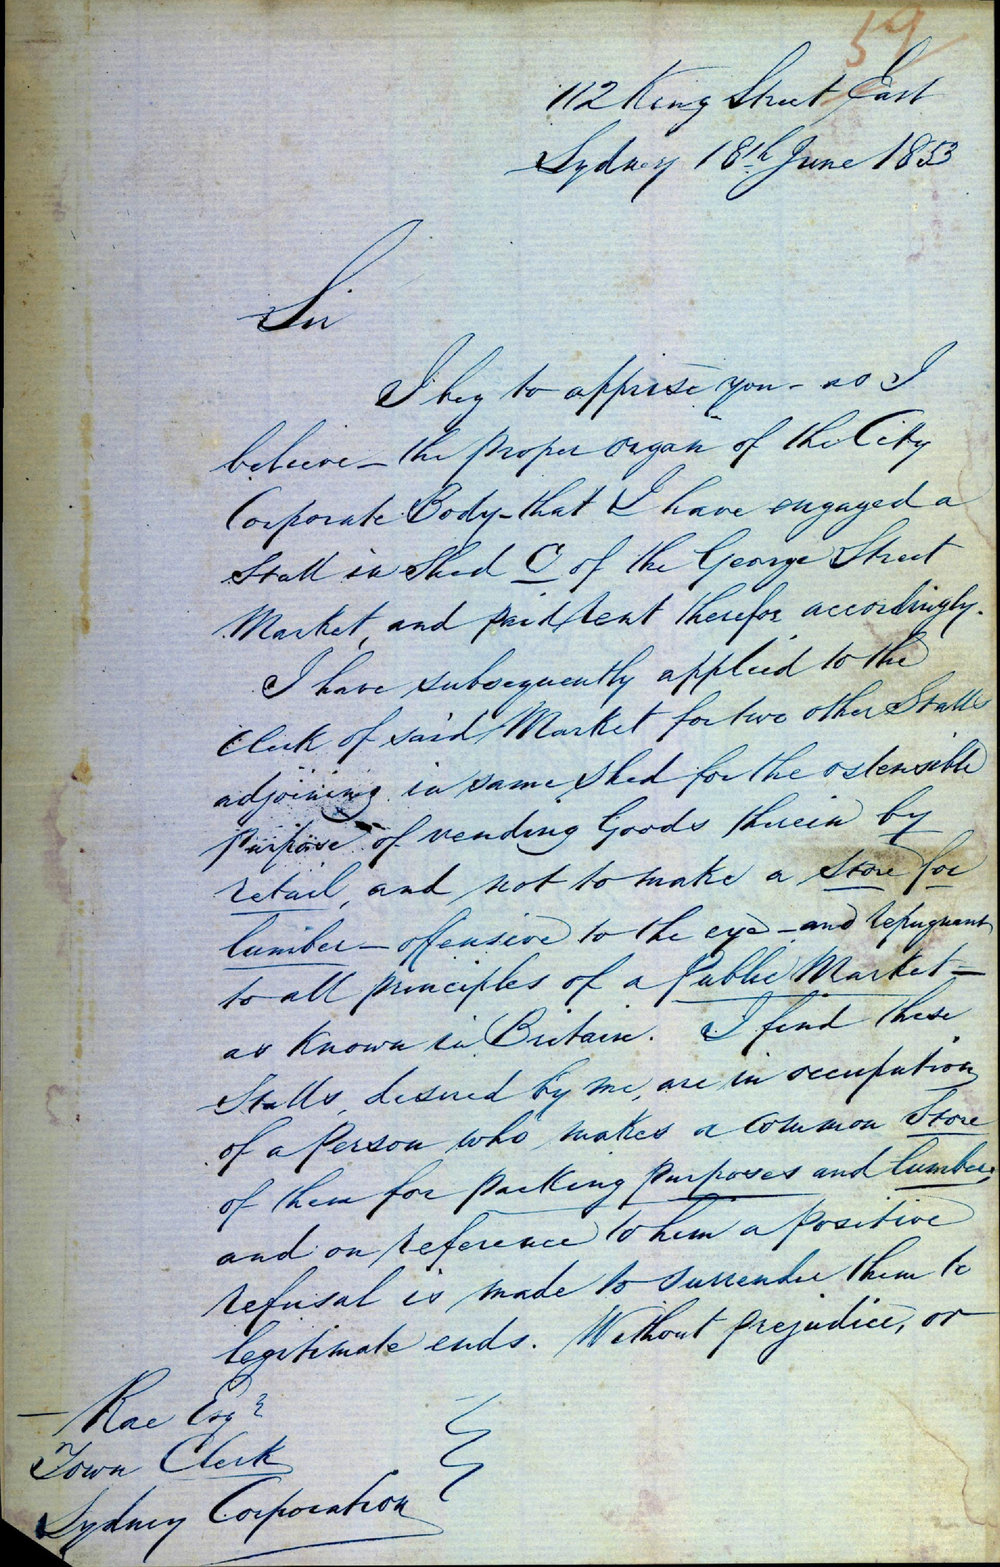 59
112 King Street East
Sydney 18th June 1853
Sir
I beg to apprise you - as I
believe - the proper organ of the City
Corporate Body - that I have engaged a
Stall in Shed C of the George Street
Market, and paid rent therefor accordingly.
I have subsequently applied to the
Clerk of said Market for two other Stalls
adjoining in same shed for the ostensible
purpose of vending Goods therein by
retail, and not to make a store for
lumber - offensive to the eye - and repugnant
to all principles of a Public Market -
as known in Britain. I find these
Stalls, desired by me, are in occupation
of a Person who makes a common Store
of them for packing purposes and lumber,
and on reference to him a positive
refusal is made to surrender them to
legitimate ends. Without prejudice, or
- Rae Esqr
Town Clerk
Sydney Corporation